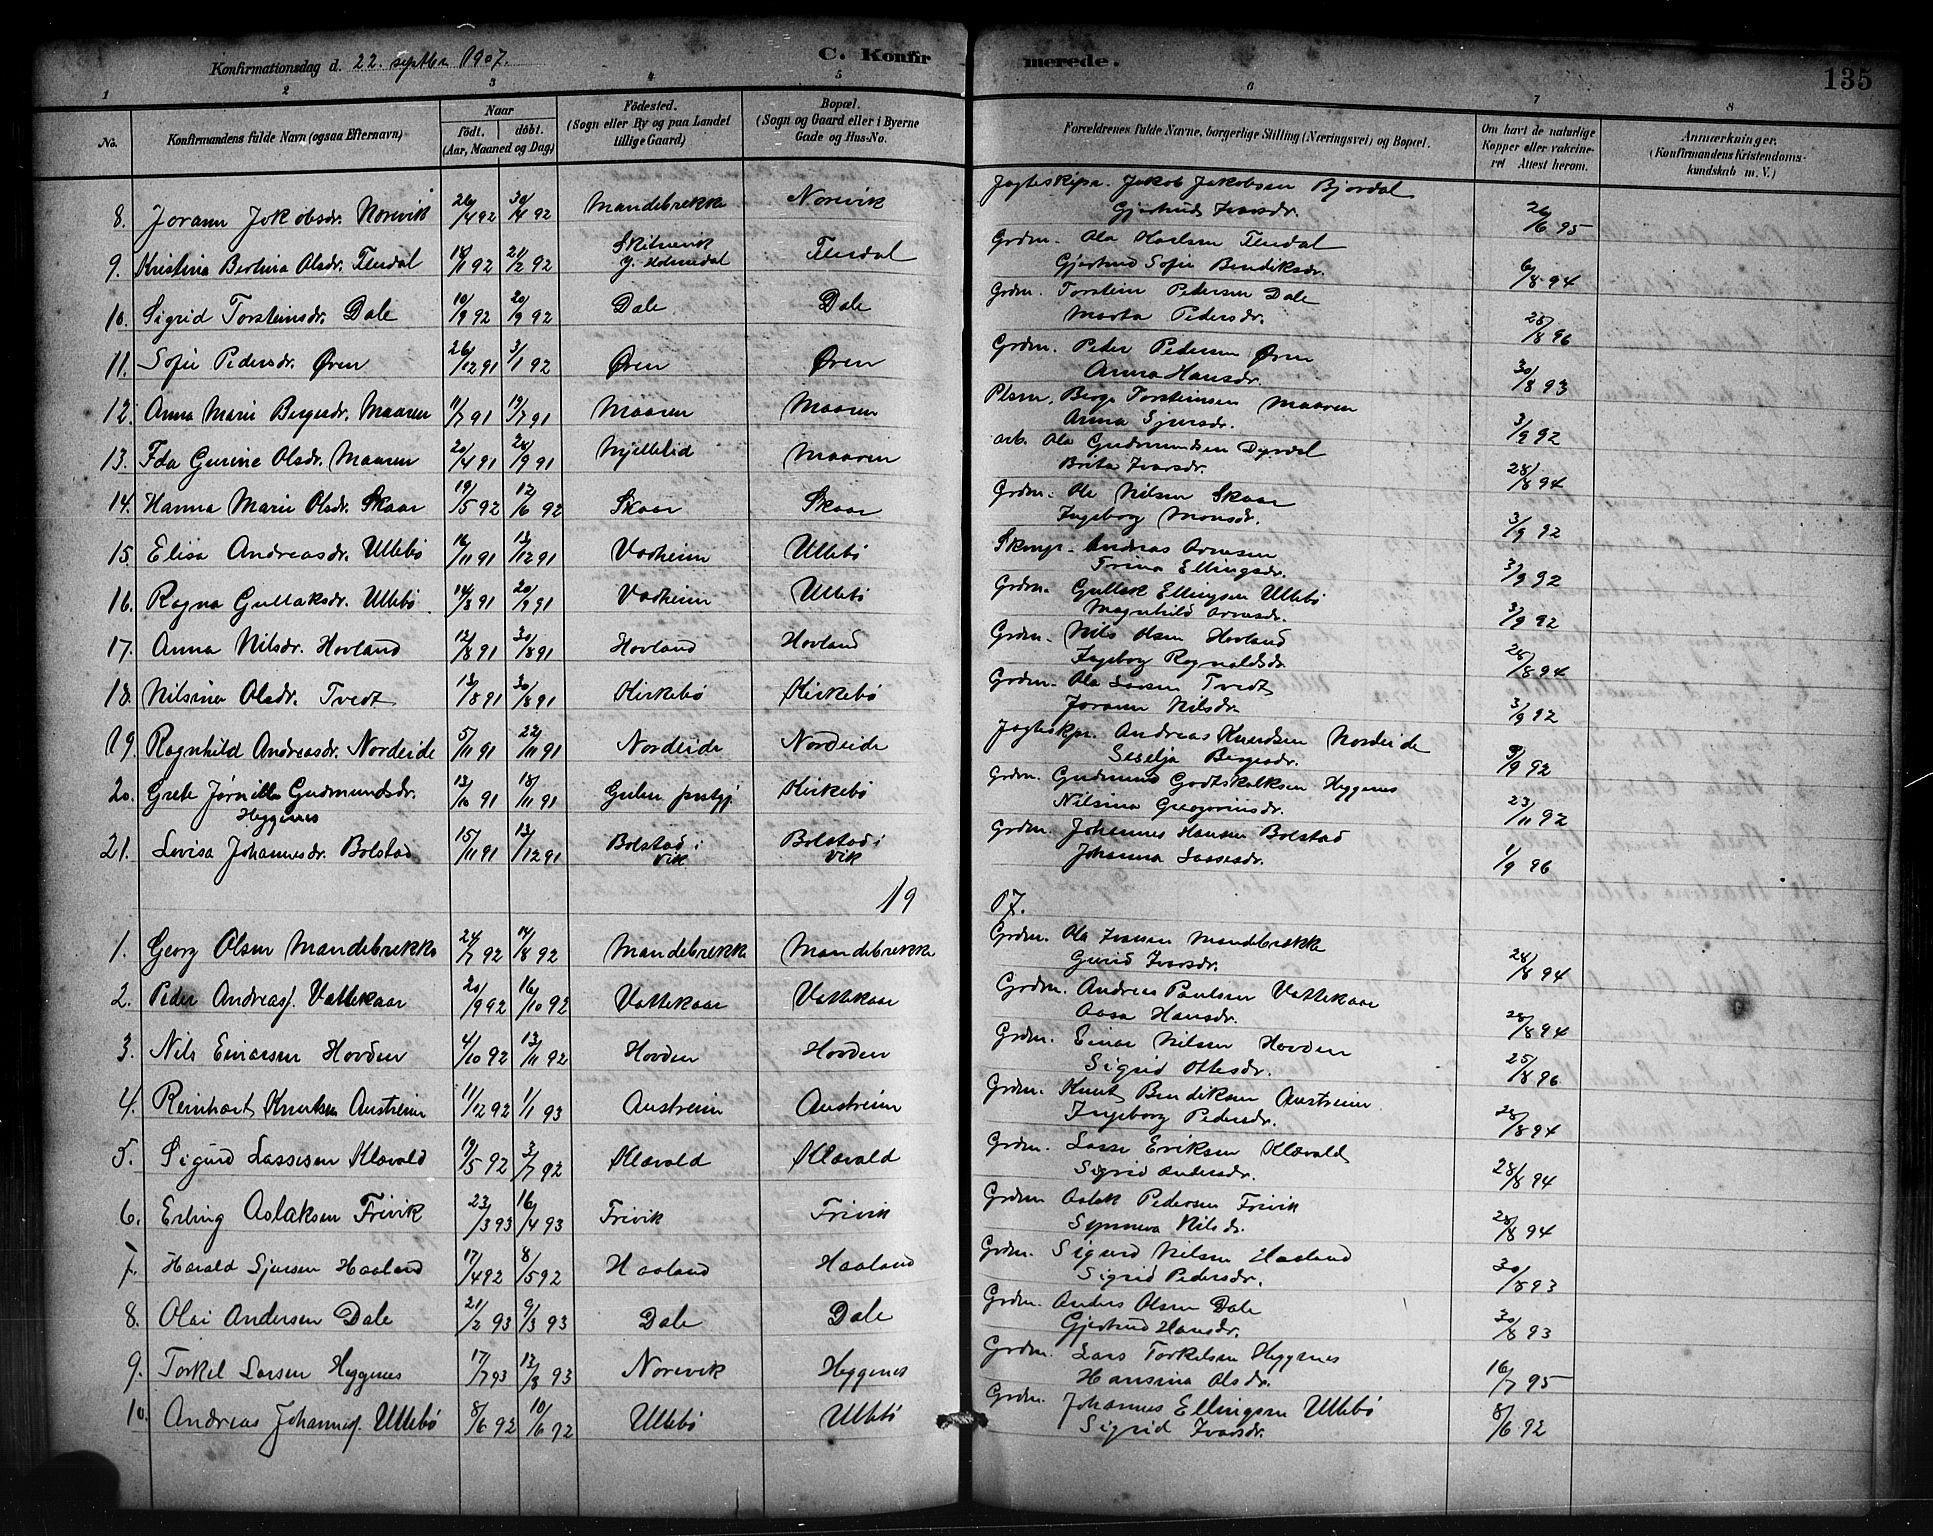 Konfirmationsdag d. 22. septbr 1907. C. Konfirmerede. 135
1 2 3 4 5 6 7 8
No. Konfirmandens fulde Navn (ogsaa Efternavn) Naar födt. döbt. (Aar, Maaned og Dag) Födested. (Sogn eller By og paa Landet tillige Gaard) Bopæl. (Sogn og Gaard eller i Byerne Gade og Hus-No. Forældrenes fulde Navne, borgerlige Stilling (Næringsvei) og Bopæl. Om havt de naturlige Kopper eller vakcineret Attest herom. Anmærkninger. (Konfirmandens Kristendomskundskab m. V.)
8. Joran Jakobsdr. Norevik 26/4 92 30/4 92 Mandebrekke Norevik Jagteskipr. Jakob Jakobsen Bjordal
Gjertrud Ivarsdr. 26/6 95
9. Kristina Bertina Olsdr. 18/11 92 21/2 92 Y. Holmedal Grdm. Ola
Gjertrud Sofie Bendiksdr. 6/8 94
10. Sigrid Torsteinsdr. Dale 10/9 92 20/9 92 Dale Dale Grdm. Torstein Pedersen Dale
Marta Pedersdr. 25/8 96
11. Sofie Pedersdr. Øren 26/12 91 3/1 92 Øren Øren Grdm. Peder Pedersen Øren
Anna Hansdr. 30/8 93
12. Anna Marie Bergesdr. Maaren 11/7 91 19/7 91 Maaren Maaren Plsm. Berge Torsteinsen Maaren
Anna Sjursdr. 3/9 92
13. Ida Gurine Olsdr. Maaren 20/4 91 28/9 91 Njøllelid Maaren arb. Ola Gudmundsen Dyrdal
Brita Ivarsdr. 28/8 94
14. Hanna Marie Olsdr. Skaar 19/5 92 12/6 92 Skaar Skaar Grdm. Ole Nilsen Skaar
Ingeborg Monsdr. 3/9 92
15. Elisa Andreasdr. Ullebø 16/11 91 13/12 91 Vadheim Ullebø Andreas Arnesen
Trina Ellingsdr. 3/9 92
16. Ragna Gullaksdr. Ullebø. 14/8 91 20/9 91 Vadheim Ullebø Grdm. Gullak Ellingsen Ullebø
Magnhild Arnesdr. 3/9 92
17. Anna Nilsdr. Hovland 12/8 91 30/8 91 Hovland Hovland Grdm. Nils Olsen Hovland
Ingeborg Ragnaldsdr. 28/8 94
18. Nilsina Olsdr. Tvedt 13/8 91 30/8 91 Kirkebø Kirkebø Grdm. Ola Larsen Tvedt
Joran Nilsdr. 3/9 92
19. Ragnhild Andreasdr. Nordeide 5/11 91 22/11 91 Nordeide Nordeide Jagteskpr. Andreas Knudsen Nordeide
Seselja Bergesdr. 3/9 92
20. Grete Jørnille Gudmundsdr. 13/10 91 18/11 91 Gulen prstgj. Kirkebø Grdm. Gudmund Godtskalksen Heggenes
Heggenes Nilsina Gregoriusdr. 23/11 92
21. Lovisa Johannesdr. Bolstad 15/11 91 13/12 91 Bolstad i Vik Bolstad i Vik Grdm. Johannes Hansen Bolstad
Johanna Lassesdr. 1/9 96
19 07.
1. Georg Olsen Mandebrekke 24/7 92 14/8 92 Mandebrekke Mandebrekke Grdm. Ola Ivarsen Mandebrække
Gurid Ivarsdr. 28/8 94
2. Peder Andreasf. Vattekaar 20/9 92 16/10 92 Vattekaar Vattekaar Grdm. Andreas Paulsen Vattekaar
Aasa Hansdr. 28/8 94
3. Nils Einarsen Hovden 4/10 92 13/11 92 Hovden Hovden Grdm. Einar Nilsen Hovden
Sigrid Ottesdr. 25/8 96
4. Reinhart Knutsen Austreim 11/12 92 1/1 93 Austreim Austreim Grdm. Knut Bendiksen Austreim
Ingeborg Pedersdr. 28/8 94
5. Sigurd Lassesen Klævold 19/5 92 3/7 92 Klævold Klævold Grdm. Lasse Eriksen Klævold
Sigrid Andersdr. 28/8 94
6. Erling Aslaksen Frivik 23/3 93 16/4 93 Frivik Frivik Grdm Aslak Pedersen Frivik
Synneva Nilsdr. 28/8 94
7. Harald Sjursen Haaland 17/4 92 8/5 92 Haaland Haaland Grdm. Sigurd Nilsen Haaland
Sigrid Pedersdr. 30/8 93
8. Olai Andersen Dale 21/2 93 9/3 93 Dale Dale Grdm. Anders Olsen Dale
Gjertrud Hansdr. 30/8 93
9. Torkel Larsen Heggenes 17/7 93 13/8 93 Norevik Heggenes Grdm. Lars Torkelsen Heggenes
Hansina Olsdr. 16/7 95
10. Andreas Johannesf. Ullebø 8/6 92 10/6 92 Ullebø Ullebø Grdm. Johannes Ellingsen Ullebø
Sigrid Ivarsdr. 8/6 92